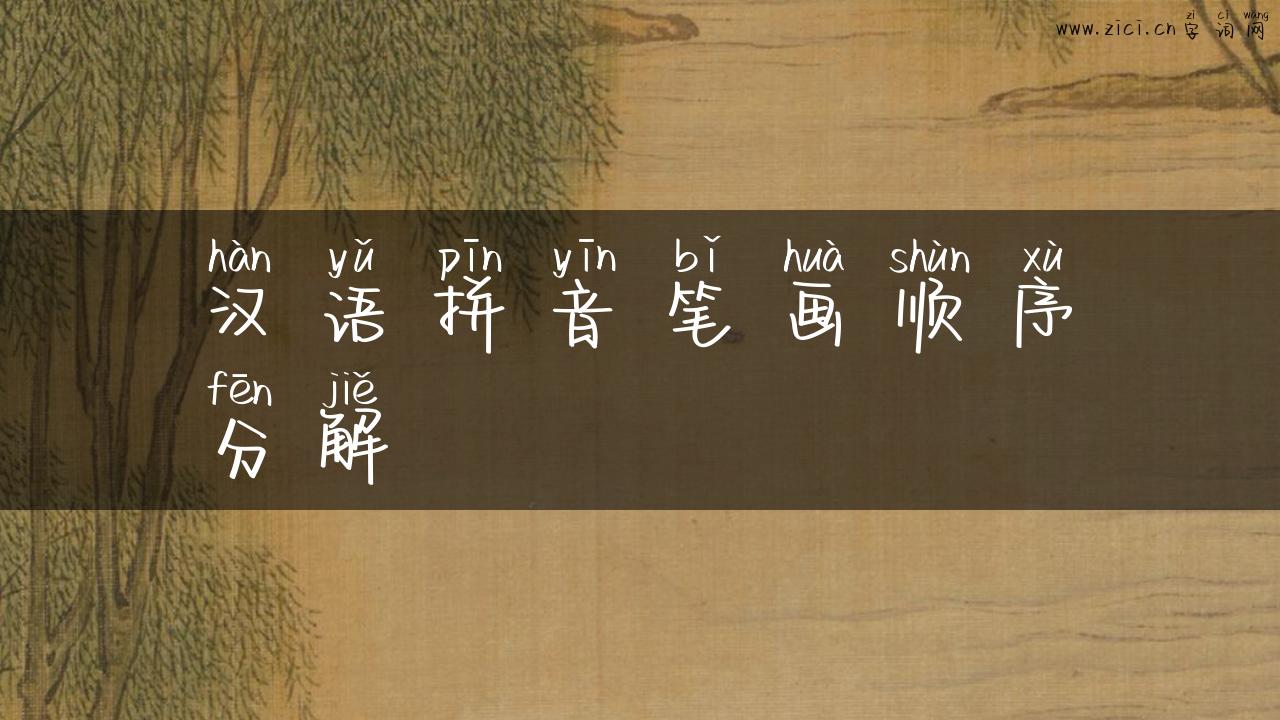 zì cí wǎng
www.zici.cn 字词网
hàn yǔ pīn yīn bǐ huà shùn xù
汉语拼音笔画顺序
fēn jiě
分解